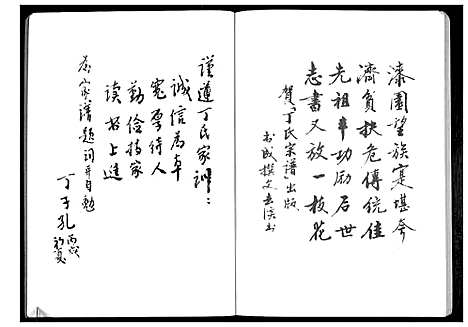 漆園望族寔堪夸
濟貧扶危傳統佳
先祖丰功励后世
志書又放一枝花
賀《丁氏宗譜》出版
書成撰文
謹遵丁氏家訓：
誠信為本
寬厚待人
勤俭持家
读书上進
為家谱题词并自勉
丁子孔 丙戌
初夏